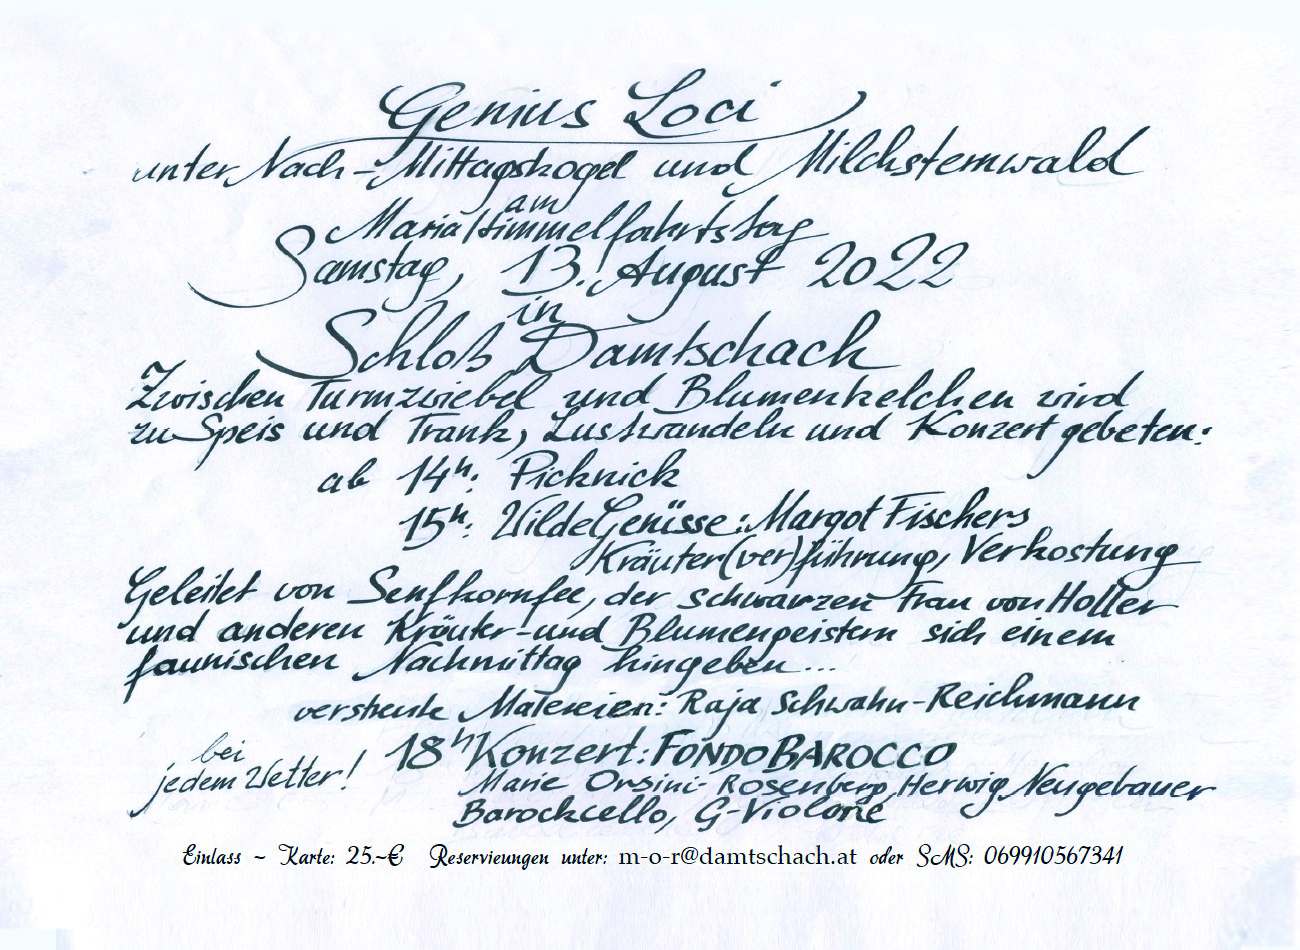 Genius Loci
unter Nach-Mittagskogel und Milchsternwald
am
Maria Himmelfahrtstag
Samstag, 13. August 2022
in
Schloß Damtschach
Zwischen Turmzwiebel und Blumenkelchen wird
zu Speis und Trank, Lustwandeln und Konzert gebeten:
ab 14h: Picknick
15h: WildeGenüsse: Margot Fischers
Kräuter(ver)führung, Verkostung
Geleitet von Senfkornfee, der schwarzen Frau von Holler
und anderen Kräuter-und Blumengeistern sich einem
faunischen Nachmittag hingeben...
versteckte Malereien: Raja Schwahn-Reichmann
bei
jedem Wetter!
18h Konzert: FONDOBAROCCO
Marie Orsini-Rosenberg, Herwig Neugebauer
Barockcello, G-Violone
Einlass ~ Karte: 25.~€ Reservieungen unter: m-o-r@damtschach.at oder SMS: 069910567341